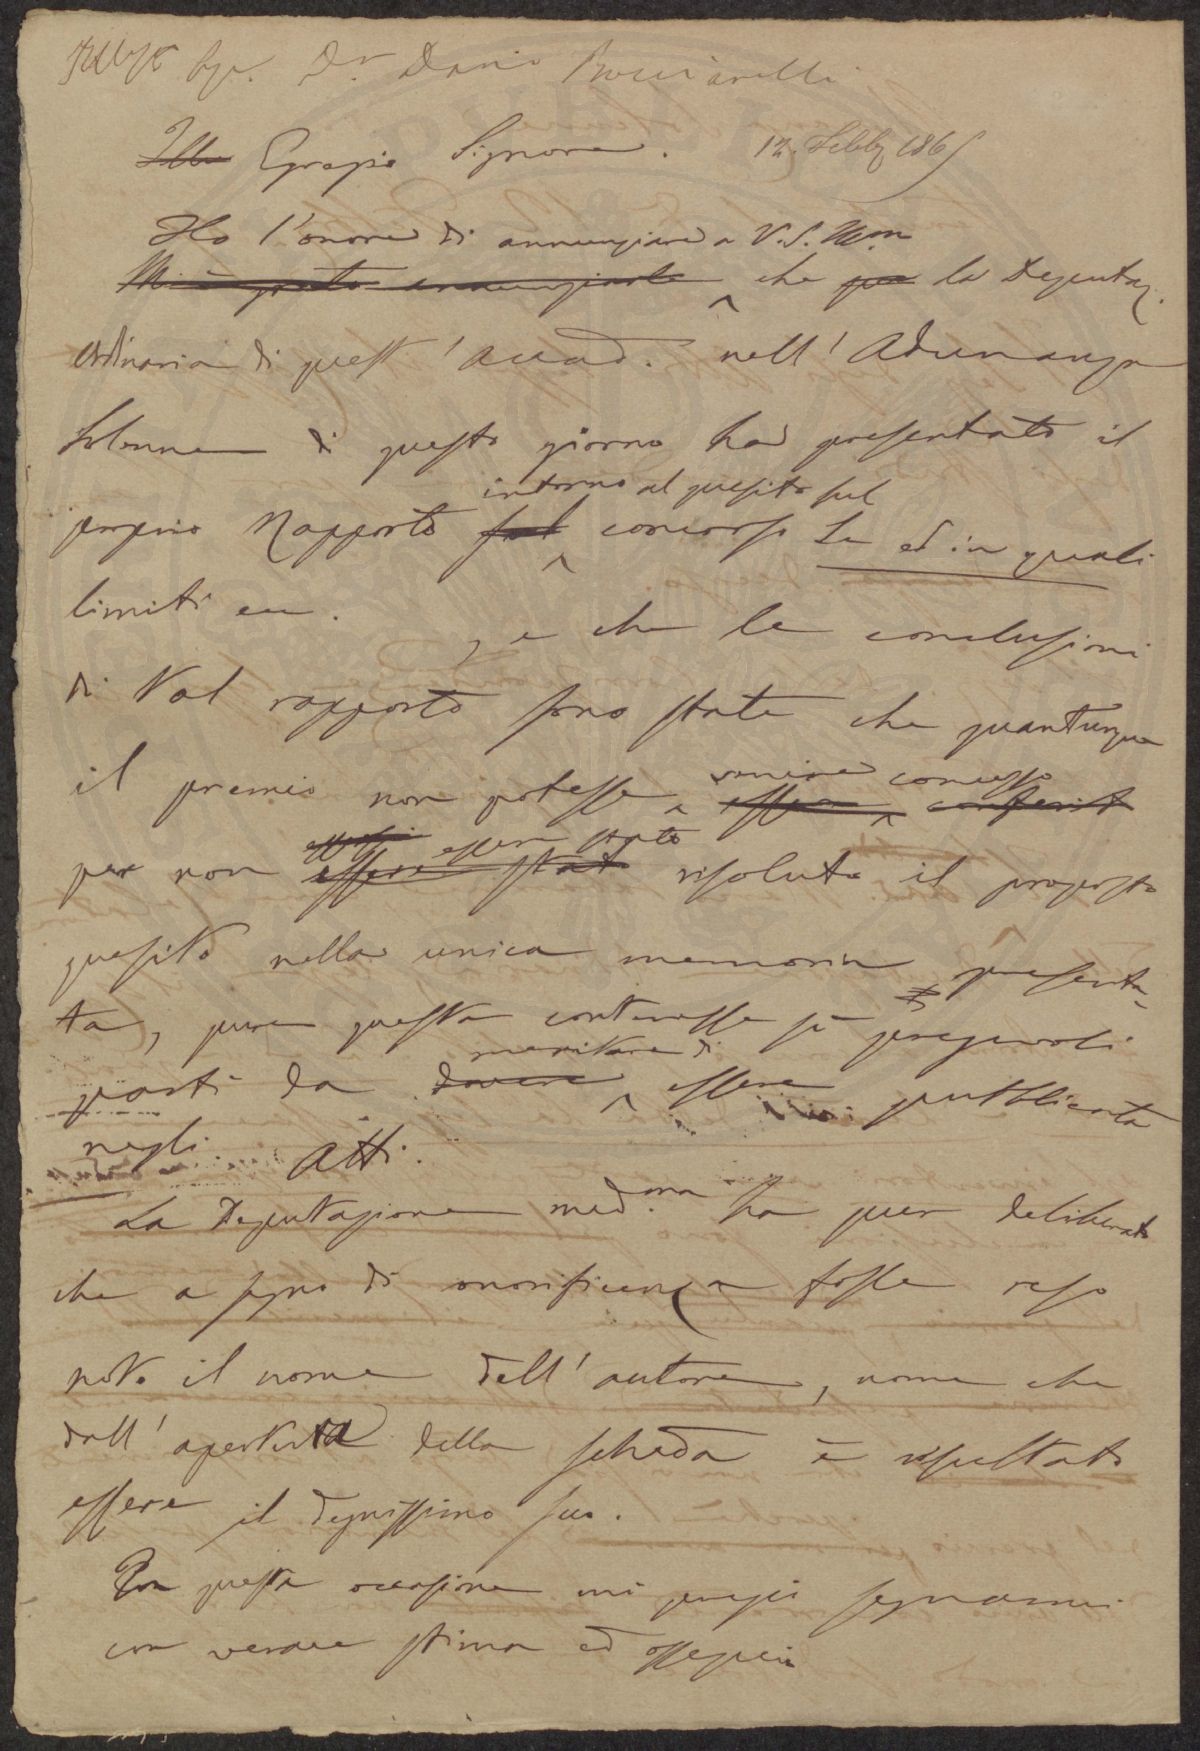 Sigr. Dr. Dario Bocciarelli
~~Ille~~ Egregio Signore. 12. Febb. 1865
Ho l'onore di annunziare a V. S. Illma
~~Mi è grato annunziarle~~ che ~~per~~ la Deputaz.
ordinaria di quest'Accad. nell'Adunanza
solenne di questo giorno ha presentato il
intorno al quesito sul
proprio Rapporto ~~sul~~ concorso Se ed in quali
limiti ecc. , e che le conclusioni
di tal rapporto sono state che quantunque
il premio non potesse venire concesso
~~essere~~ ~~conferito~~
essere stato
per non ~~essere stato~~ risoluto il proposto
quesito nella unica memoria presenta-
ta, pure questa contenesse sì pregevoli
meritare di
parti da ~~dovere~~ essere pubblicata
negli Atti.
La Deputazione med.ma ha pur deliberato
che a segno di onorificenza fosse reso
noto il nome dell'autore, nome che
dall'apertura della scheda è risultato
essere il degnissimo suo.
Con questa occasione mi pregio segnarmi
con verace stima ed ossequio